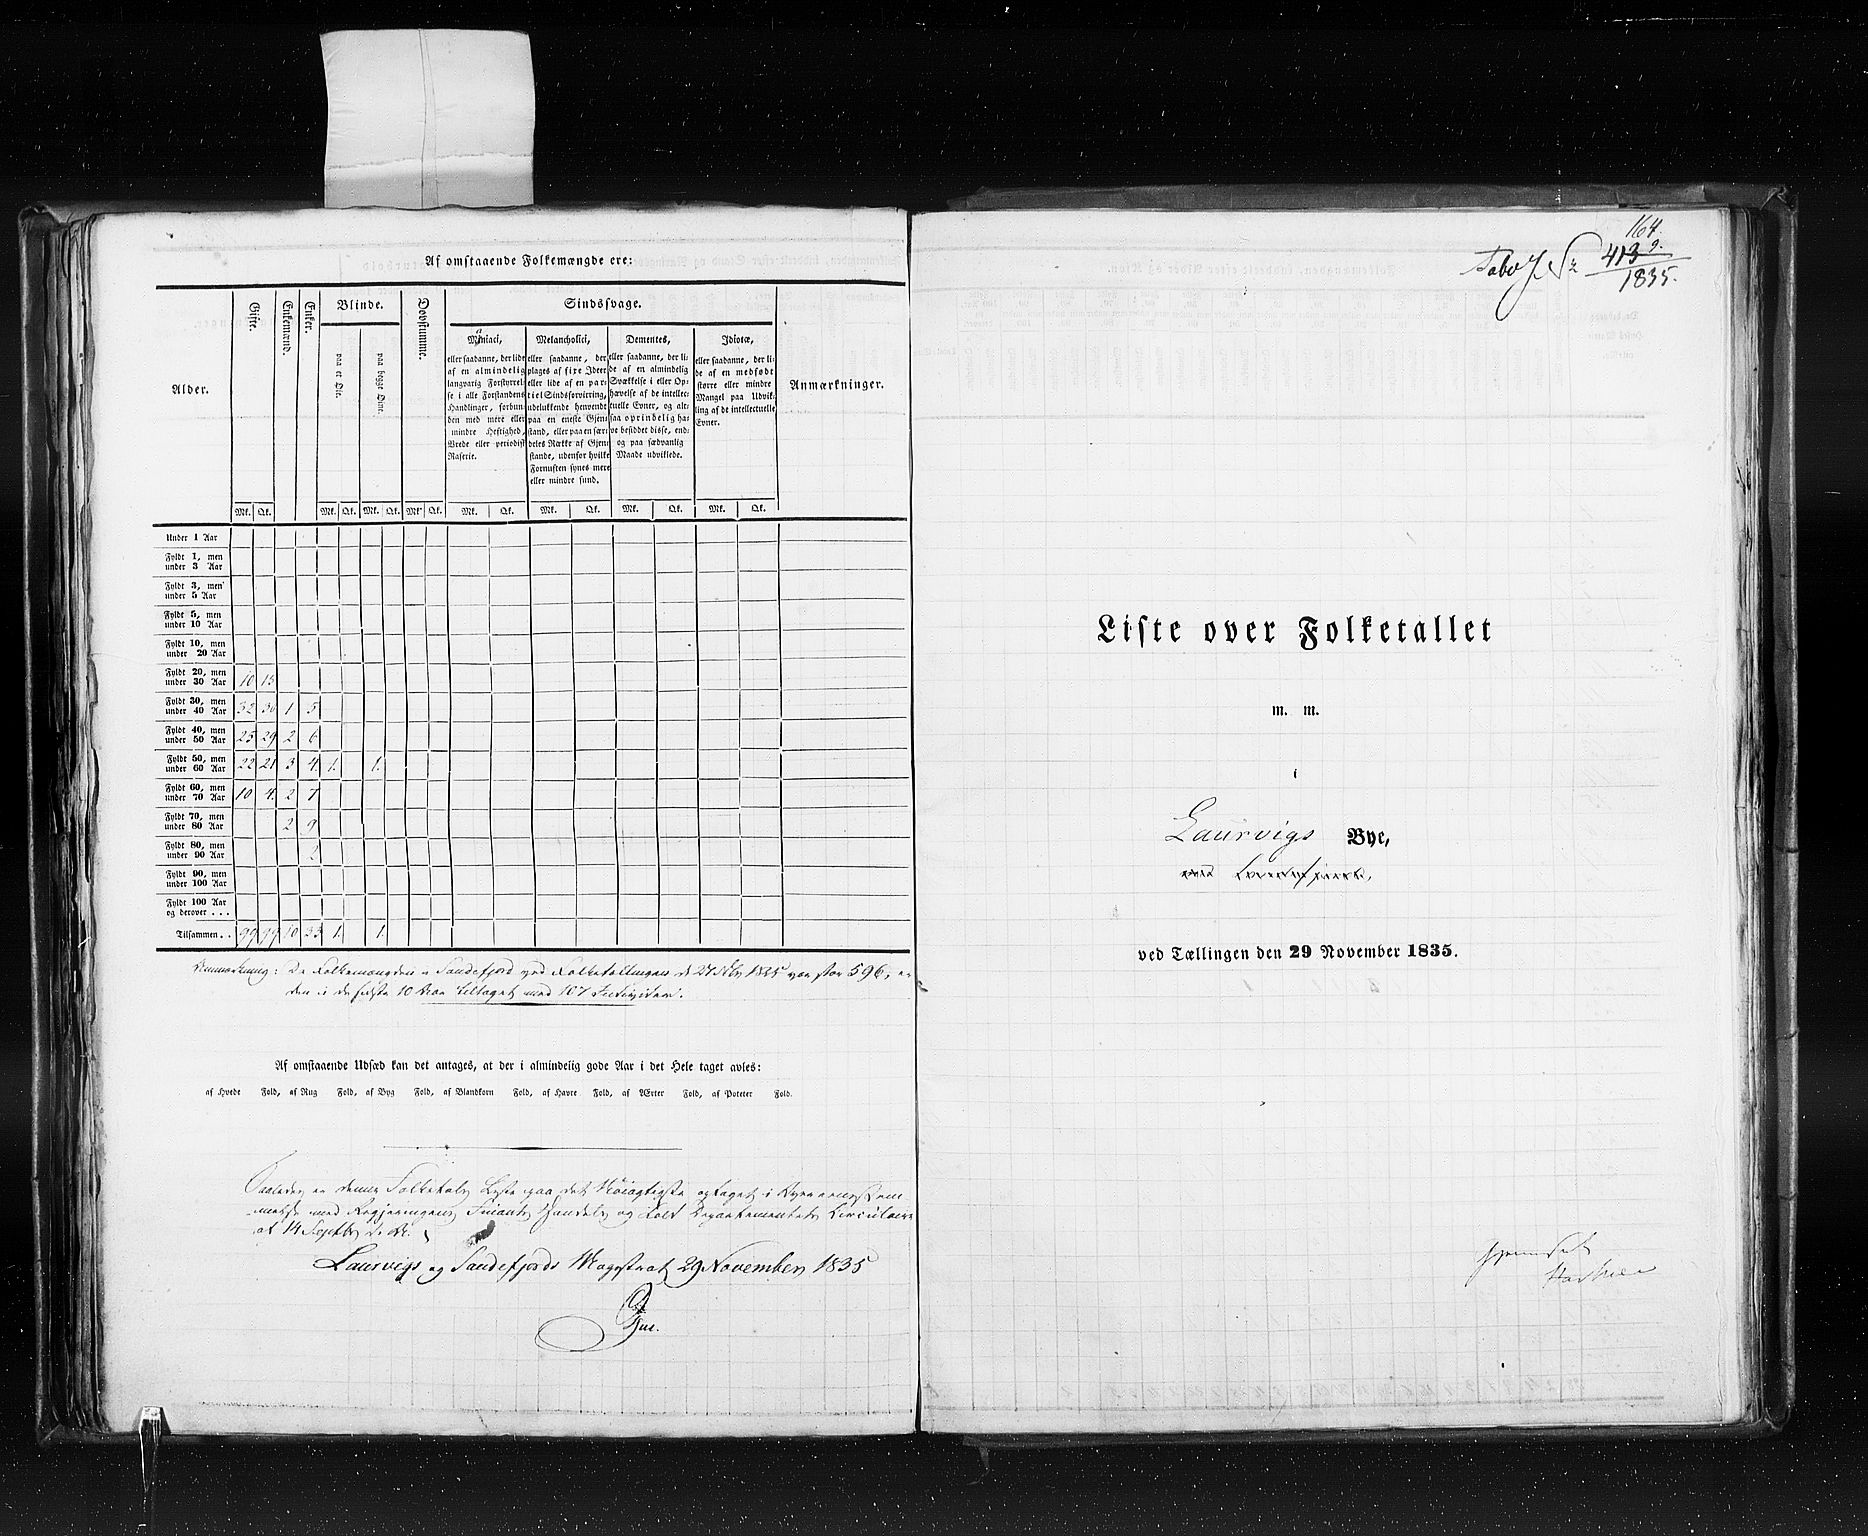 Af omstaaende Folkemængde ere:
Alder.
Gifte.
Enkemænd.
Enker.
Blinde.
paa et Øie.
paa begge Øine.
Døvstumme.
Sindssvage.
Maniaci,
eller saadanne, der lide
af en almindelig
langvarig Forstyrrel-
se i alle Forstandens
Handlinger, forbun-
den med mere eller
mindre Heftighed,
Vrede eller periodisk
Raserie.
Melancholici,
eller saadanne, der
plages af fixe Ideer
eller lide af en par-
tiel Sindsforvirring,
udelukkende henvendt
paa en eneste Gjen-
stand, eller paa en sær-
deles Række af Gjen-
stande, udenfor hvilke
Fornuften synes mere
eller mindre sund.
Dementes,
eller saadanne, der li-
de af en almindelig
Svækkelse i eller Op-
hævelse af de intellec-
tuelle Evner, og alt-
saa oprindelig ha-
ve besiddet disse, end-
og paa sædvanlig
Maade udviklede.
Idiotæ,
eller saadanne, der li-
de af en medfødt
større eller mindre
Mangel paa Udvik-
ling af de intellectuelle
Evner.
Anmærkninger.
Mk. Qk. Mk. Qk. Mk. Qk. Mk. Qk. Mk. Qk. Mk. Qk. Mk. Qk. Mk. Qk.
Under 1 Aar
Fyldt 1, men
under 3 Aar
Fyldt 3, men
under 5 Aar
Fyldt 5, men
under 10 Aar
Fyldt 10, men
under 20 Aar
Fyldt 20, men
under 30 Aar 10 13
Fyldt 30, men
under 40 Aar 32 36 1 5
Fyldt 40, men
under 50 Aar 25 29 2 6
Fyldt 50, men
under 60 Aar 22 21 3 4. 1. 1.
Fyldt 60, men
under 70 Aar 10 4. 2 7
Fyldt 70, men
under 80 Aar 2 9
Fyldt 80, men
under 90 Aar 2
Fyldt 90, men
under 100 Aar
Fyldt 100 Aar
og derover . . .
Tilsammen . . 99 99 10 33 1. 1.
Anmærkning: De Folkemængden i Sandefjord ved Folketællingen 1825 var stor 596, er
den i de sidste 10 Aar tiltaget med 107 Individer.
Af omstaaende Udsæd kan det antages, at der i almindelig gode Aar i det Hele taget avles:
af Hvede Fold, af Rug Fold, af Byg Fold, af Blandkorn Fold, af Havre Fold, af Ærter Fold, af Poteter Fold.
Saaledes er denne Folketals Liste paa det Nøiagtigste optaget i Overeensstem-
melse med Regjeringens Finants Handels og Told Departementets Circulaire
af 14 Septbr d. A.
Laurvigs og Sandefjords Magistrat 29 November 1835
164.
413
1835.
Liste over Folketallet
m. m.
i
Laurvigs Bye,
ved Tællingen den 29 November 1835.